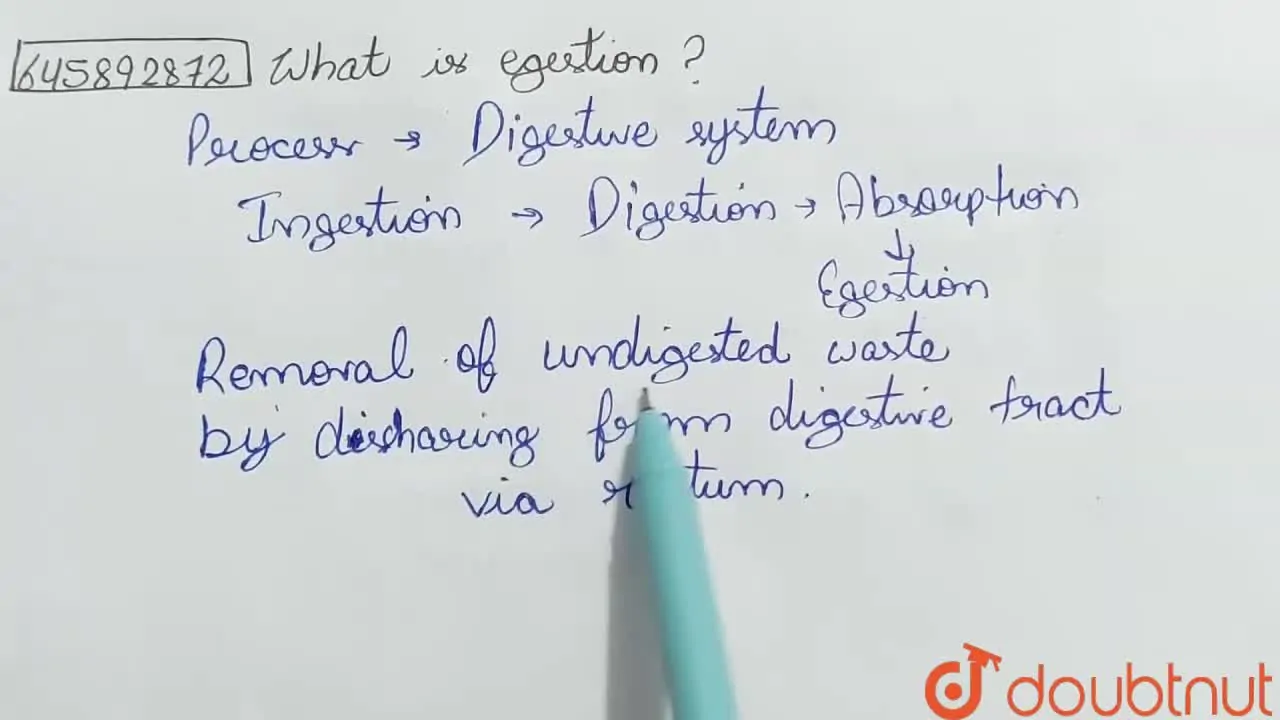 645892872 What is egestion ?
Process → Digestive system
Ingestion → Digestion → Absorption
↓
Egestion
Removal of undigested waste
by disharing digestive tract
via
doubtnut